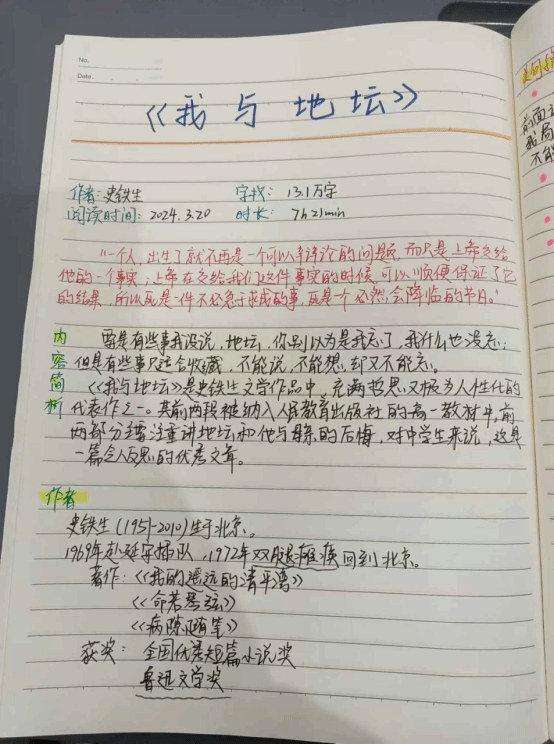 No.
Date.
《我与地坛》
作者：史铁生 字数：13.1万字
阅读时间：2024.3.20 时长：7h21min
"一个人，出生了就不再是一个可以辩论的问题，而只是上帝交给
他的一个事实；上帝在交给我们这件事实的时候，可以顺便保证了它
的结果，所以死是一件不必急于求成的事，死是一个必然会降临的节日。"
内容简析
要是有些事我没说，地坛，你别以为是我忘了，我什么也没忘；
但是有些事只适合收藏，不能说，不能想，却又不能忘。
《我与地坛》是史铁生文学作品中，充满哲思又极为人性化的
代表作之一。其前两段被纳入人民教育出版社的高一教材中，前
两部分注重讲地坛和他与母亲的后悔，对中学生来说，这是
一篇令人反思的优秀文章。
作者
史铁生（1951-2010）生于北京。
1969年赴延安插队，1972年双腿瘫痪回到北京。
著作：《我的遥远的清平湾》
《命若琴弦》
《病隙随笔》
获奖：全国优秀短篇小说奖
鲁迅文学奖
前面
我局
不能